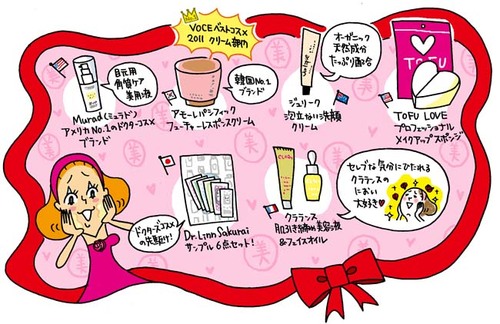 VOCEベストコスメ
2011 クリーム部門
目元用
角質ケア
美用液
Murad(ミュラド)
アメリカ No.1のドクターコスメ
ブランド
韓国No.1
ブランド
アモーレパシフィック
フューチャーレスポンスクリーム
オーガニック
天然成分
たっぷり配合
ジュリーク
泡立ない洗顔
クリーム
TOFU
TOFU LOVE
プロフェッショナル
メイクアップスポンジ
ドクターズコスメ
の先駆け!
Dr.Linn Sakurai
サンプル 6点セット!
クラランス
肌引き締め美容液
&フェイスオイル
セレブな気分にひたれる
クラランスの
におい
大好き♥
美
美
美
美
美